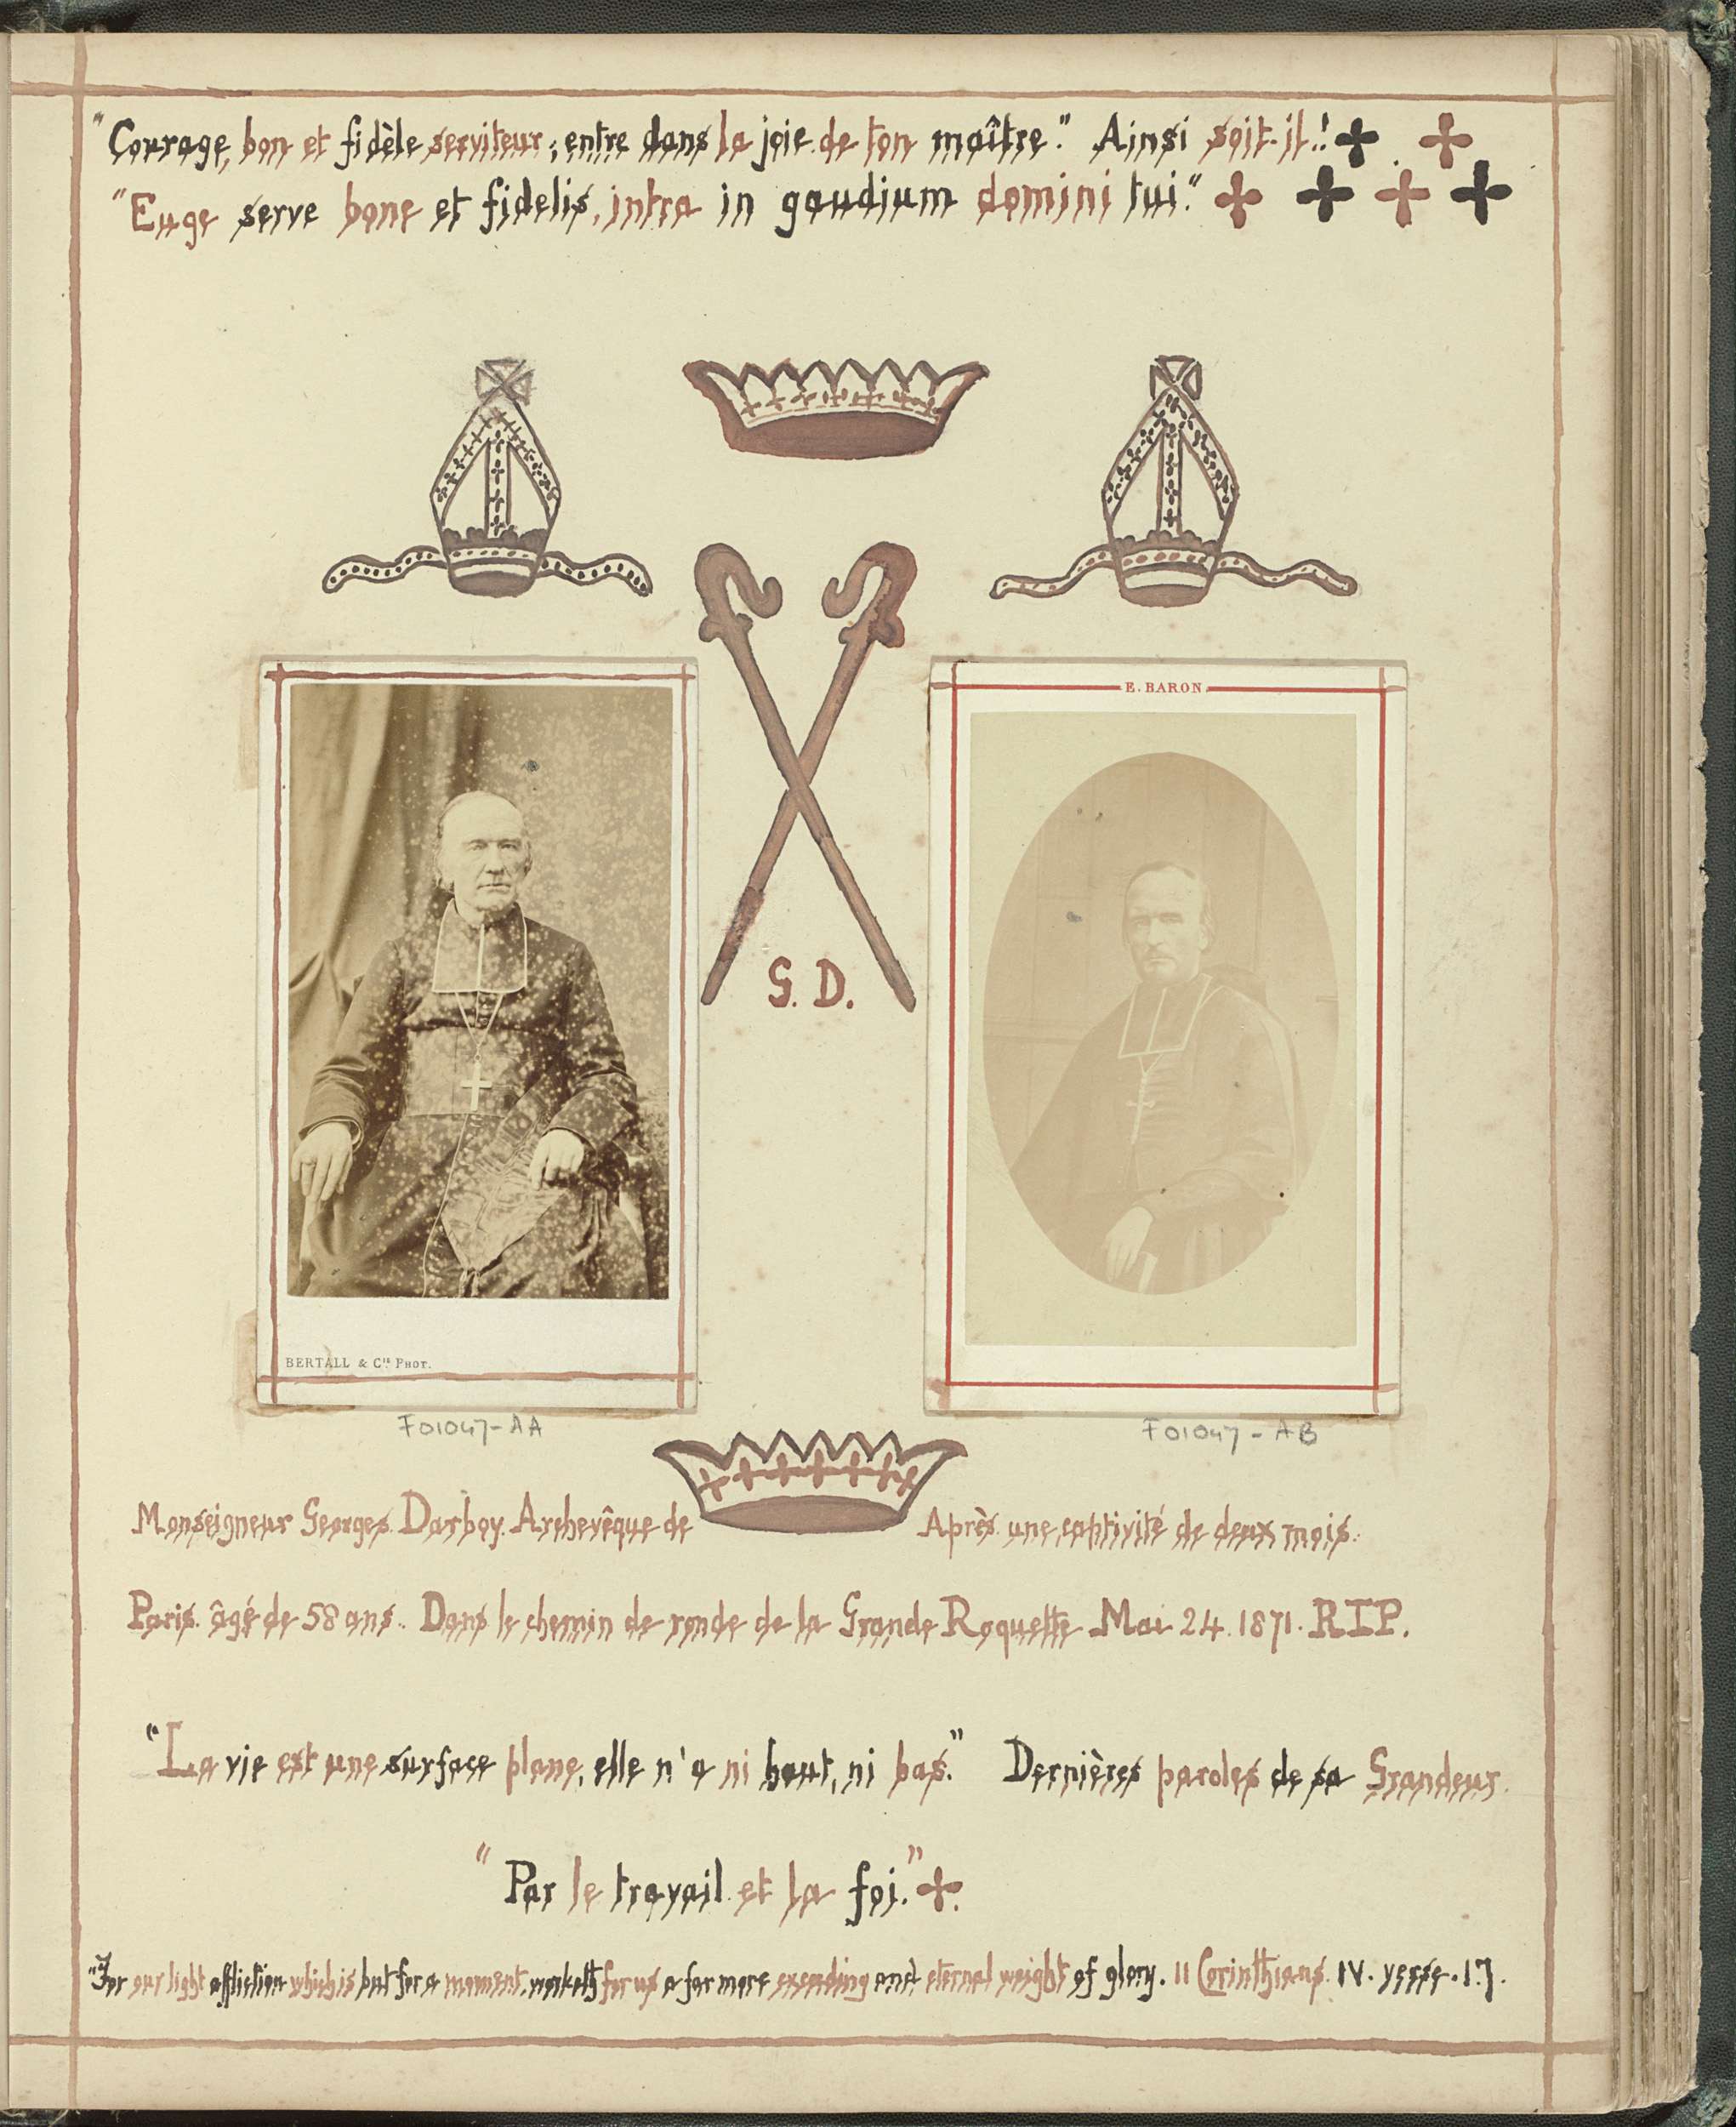 "Courage, bon et fidèle serviteur; entre dans la joie de ton maître." Ainsi soit-il!
"Euge serve bone et fidelis, intra in gaudium domini tui."
E. BARON
G. D.
BERTALL & Cie PHOT.
F01047-AA
F01047-AB
Monseigneur Georges Darboy. Archevêque de Après une captivité de deux mois.
Paris. âgé de 58 ans. Dans le chemin de ronde de la Grande Roquette Mai 24. 1871. RIP.
"La vie est une surface plane, elle n'a ni haut, ni bas." Dernières paroles de sa Grandeur.
"Par le travail et la foi."
"For our light affliction which is but for a moment, worketh for us a far more exceeding and eternal weight of glory. II Corinthians. IV. verse. 17.